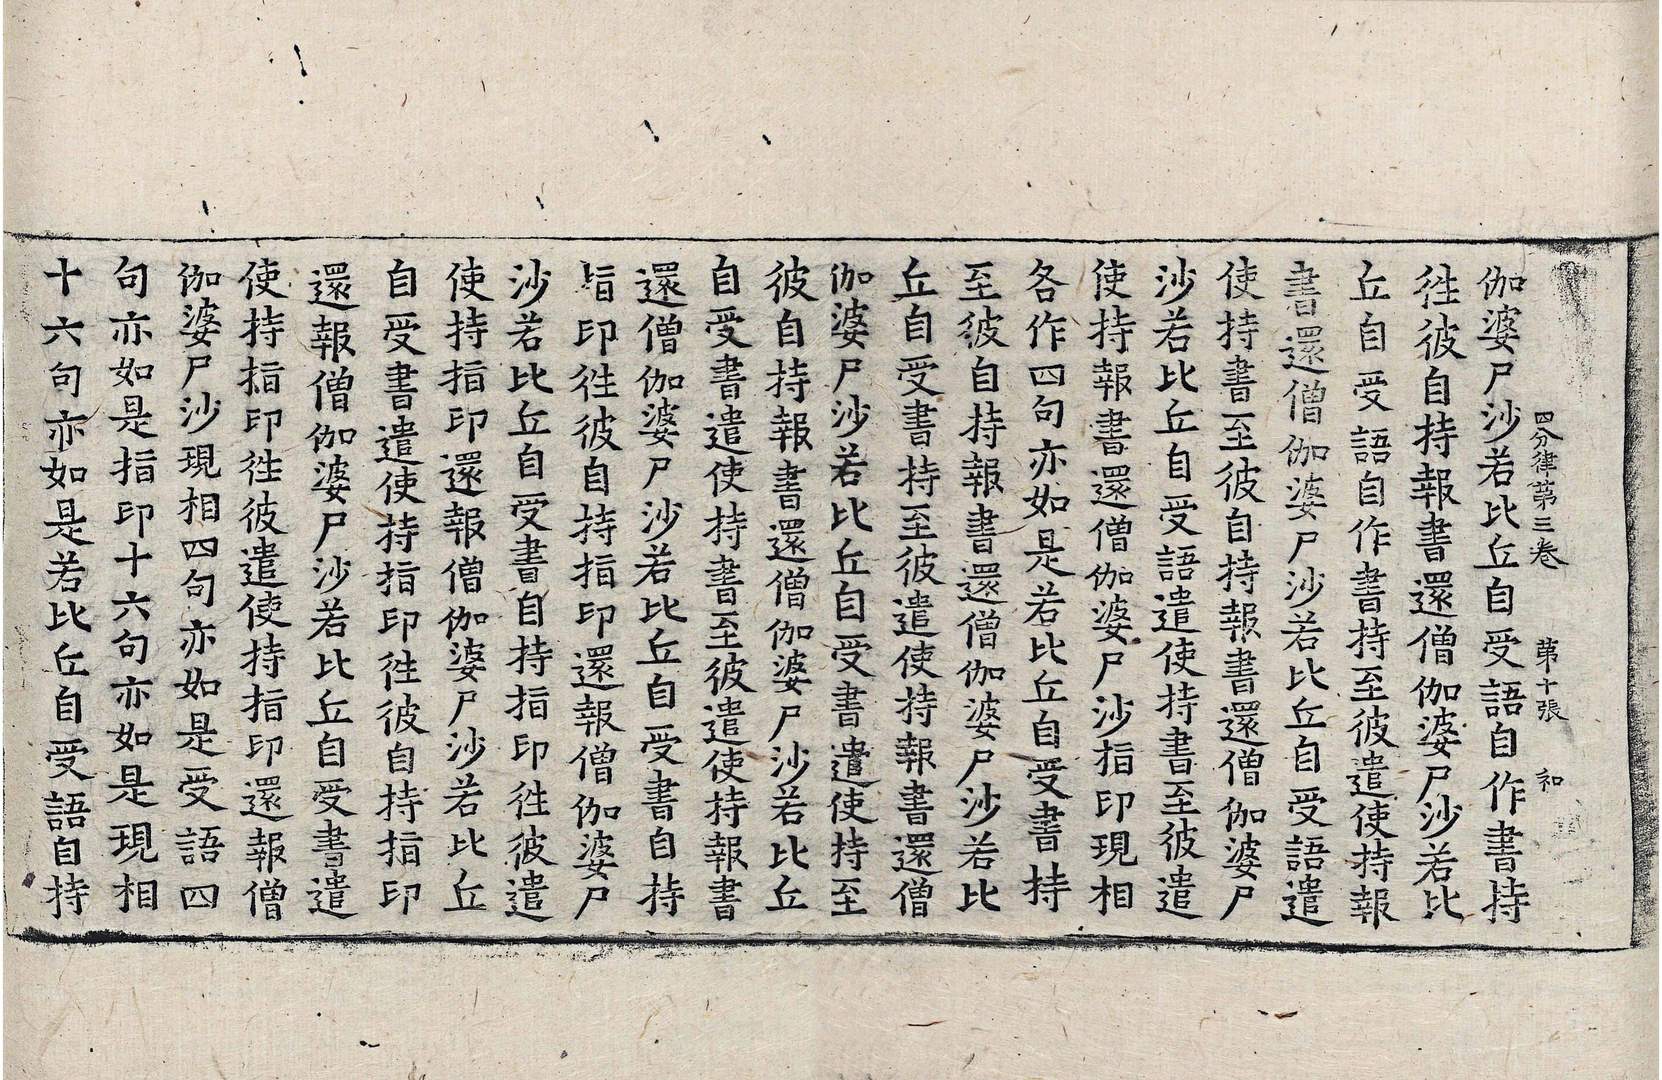 四分律第三卷　第十張　和
伽婆尸沙若比丘自受語自作書持
徃彼自持報書還僧伽婆尸沙若比
丘自受語自作書持至彼遣使持報
書還僧伽婆尸沙若比丘自受語遣
使持書至彼自持報書還僧伽婆尸
沙若比丘自受語遣使持書至彼遣
使持報書還僧伽婆尸沙指印現相
各作四句亦如是若比丘自受書持
至彼自持報書還僧伽婆尸沙若比
丘自受書持至彼遣使持報書還僧
伽婆尸沙若比丘自受書遣使持至
彼自持報書還僧伽婆尸沙若比丘
自受書遣使持書至彼遣使持報書
還僧伽婆尸沙若比丘自受書自持
指印徃彼自持指印還報僧伽婆尸
沙若比丘自受書自持指印徃彼遣
使持指印還報僧伽婆尸沙若比丘
自受書遣使持指印徃彼自持指印
還報僧伽婆尸沙若比丘自受書遣
使持指印徃彼遣使持指印還報僧
伽婆尸沙現相四句亦如是受語四
句亦如是指印十六句亦如是現相
十六句亦如是若比丘自受語自持